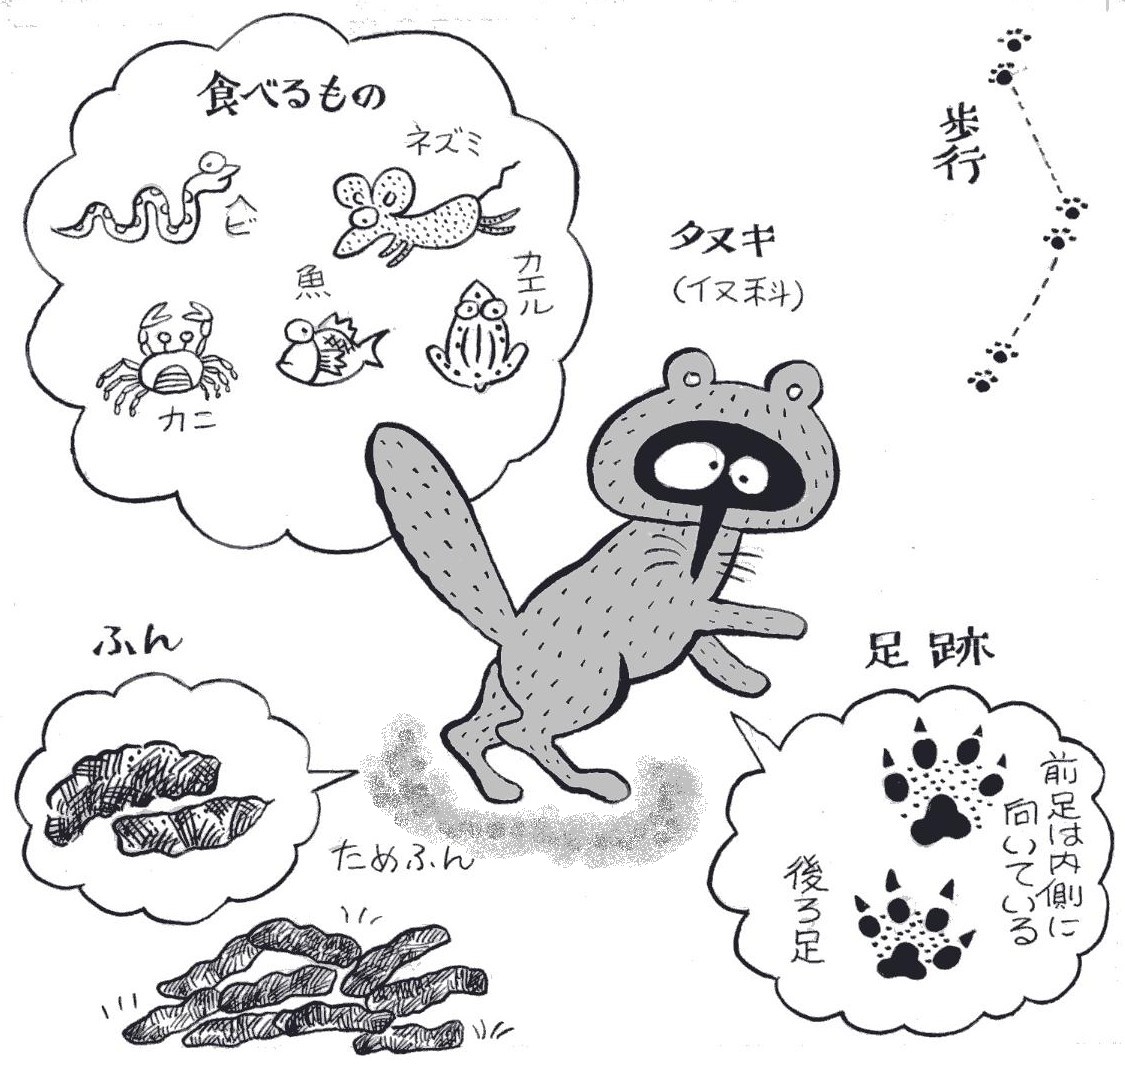 食べるもの
ネズミ
ヘビ
魚
カエル
カニ
タヌキ
(イヌ科)
歩行
ふん
ためふん
足跡
前足は内側に
向いている
後ろ足